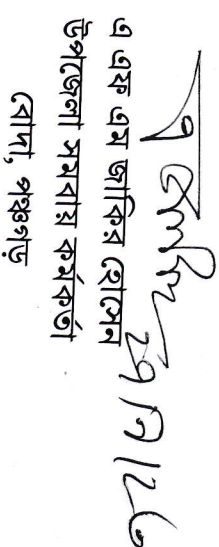 এ এফ এম জাকির হোসেন
উপজেলা সমবায় কর্মকর্তা
বোদা, পঞ্চগড়